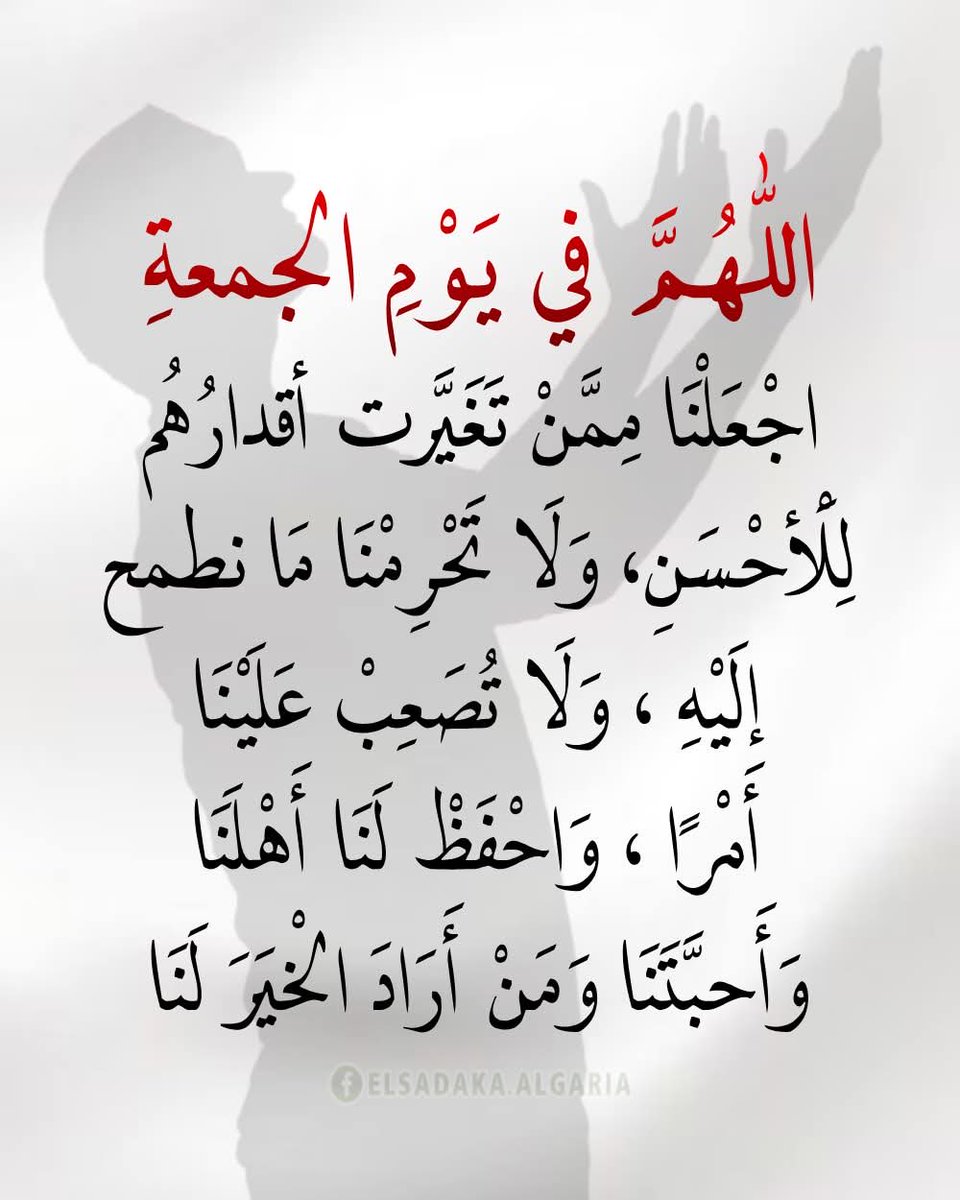 اللّٰهُمَّ في يَوْمِ الجمعةِ
اجْعَلْنَا مِمَّنْ تَغَيَّرت أقدارُهُم
لِلْأحْسَنِ، وَلَا تَحْرِمْنَا مَا نطمح
إلَيْهِ ، وَلَا تُصَعِبْ عَلَيْنَا
أَمْرًا ، وَاحْفَظْ لَنَا أَهْلَنَا
وَأَحبَّتَنَا وَمَنْ أَرَادَ الْخيَرَ لَنَا
ELSADAKA.ALGARIA